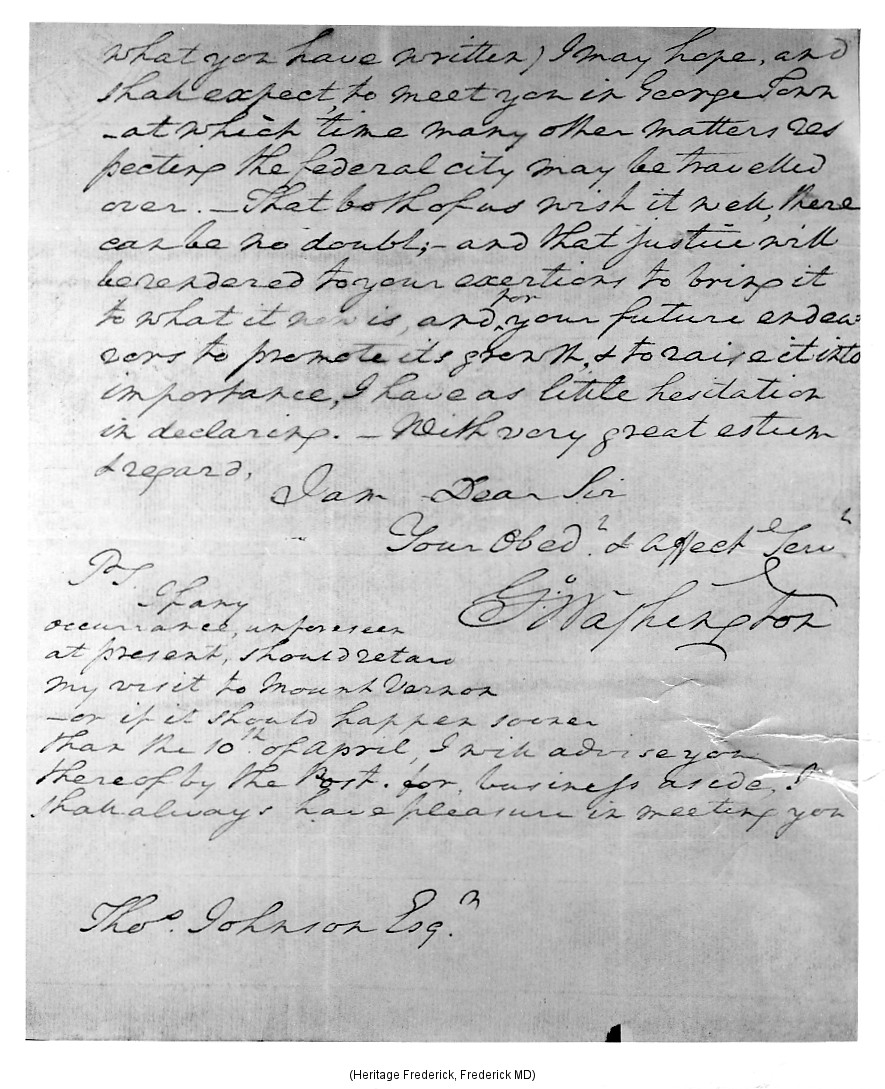 what you have written) I may hope, and
shall expect, to meet you in George Town
–at which time many other matters res
pecting the federal city may be travelled
over. – That both of us wish it well, there
can be no doubt; – and that justice will
be rendered to your exertions to bring it
to what it now is, and for your future endea-
vors to promote its growth, & to raise it into
importance, I have as little hesitation
in declaring. – With very great esteem
& regard,
I am Dear Sir
Your Obedt. & Affecte Servt
Go: Washington
PS.
If any
occurrance, unforeseen
at present, should retard
my visit to Mount Vernon
–or if it should happen sooner
than the 10th of April, I will advise you
thereof by the Post. for, business aside, I
shall always have pleasure in meeting you
Thos. Johnson Esqr.
(Heritage Frederick, Frederick MD)